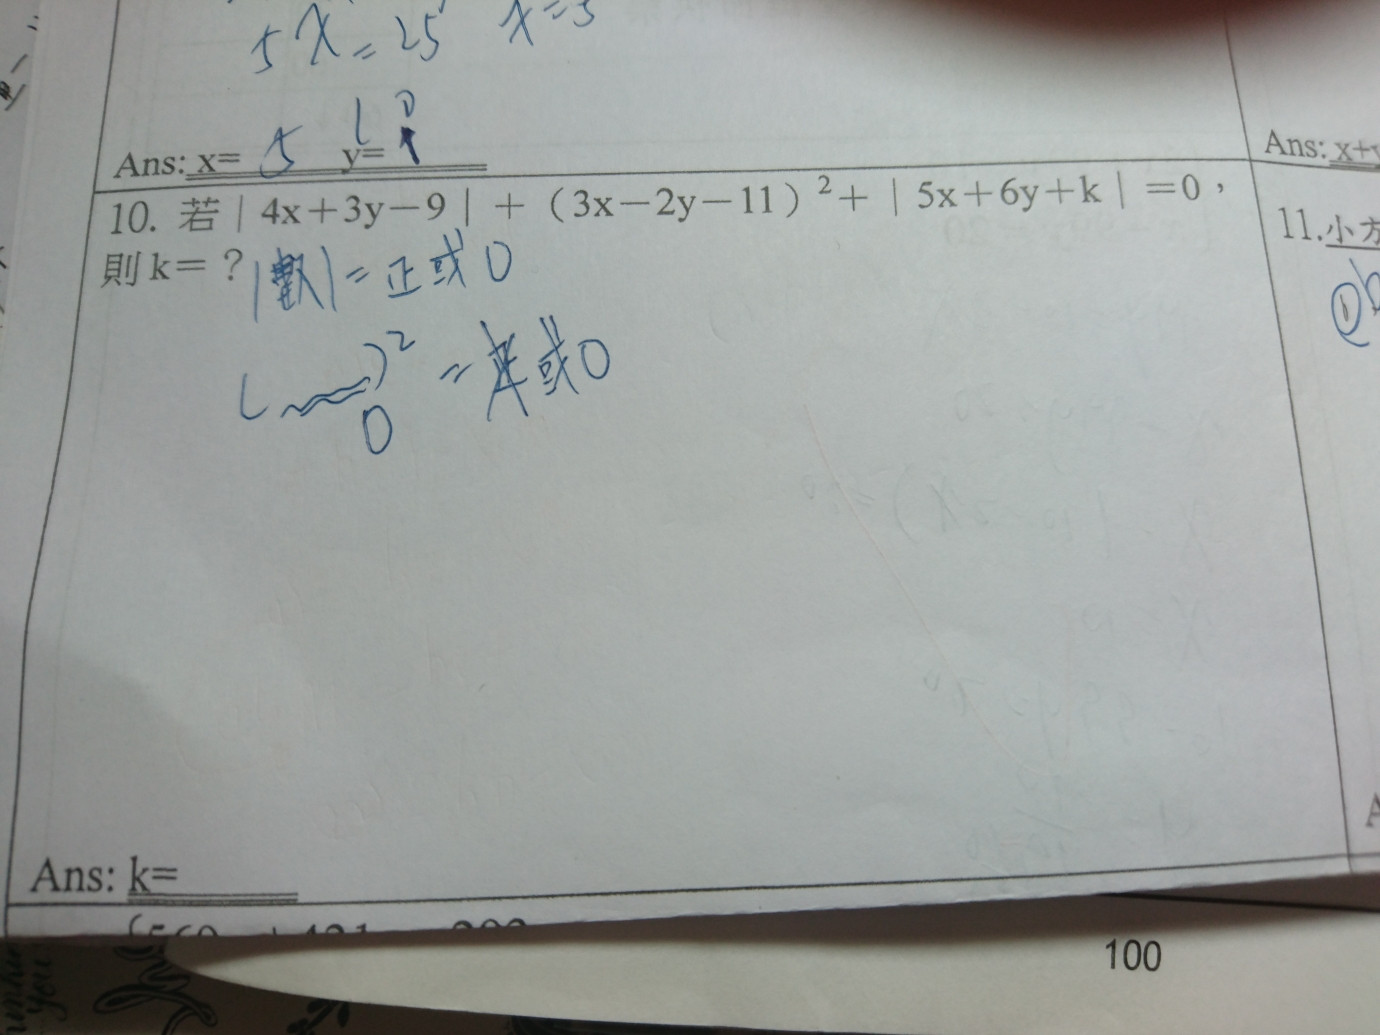 5x=25 x=5
Ans: x= 5 y=
Ans: x+y
10. 若｜4x+3y－9｜+（3x－2y－11）²+｜5x+6y+k｜=0，
則k=？
|數|=正或0
( )²=正或0
0
11.小方
①
Ans: k=
100